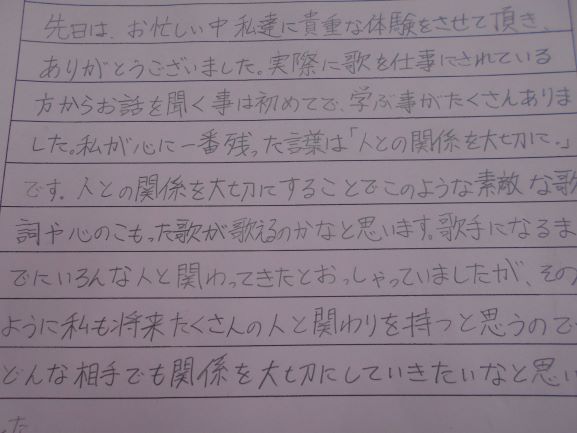 先日は、お忙しい中 私達に貴重な体験をさせて頂き、
ありがとうございました。実際に歌を仕事にされている
方からお話を聞く事は初めてで、学ぶ事がたくさんありま
した。私が心に一番残った言葉は「人との関係を大切に。」
です。人との関係を大切にすることでこのような素敵な歌
詞や心のこもった歌が歌えるのかなと思います。歌手になるま
でにいろんな人と関わってきたとおっしゃっていましたが、その
ように私も将来たくさんの人と関わりを持つと思うので
どんな相手でも関係を大切にしていきたいなと思い
した